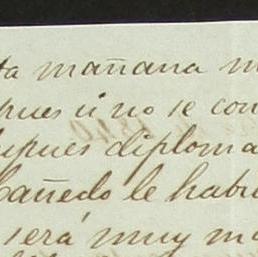 ta mañana m
pues si no se con
despues diploma
Cañedo le habr
será muy ma